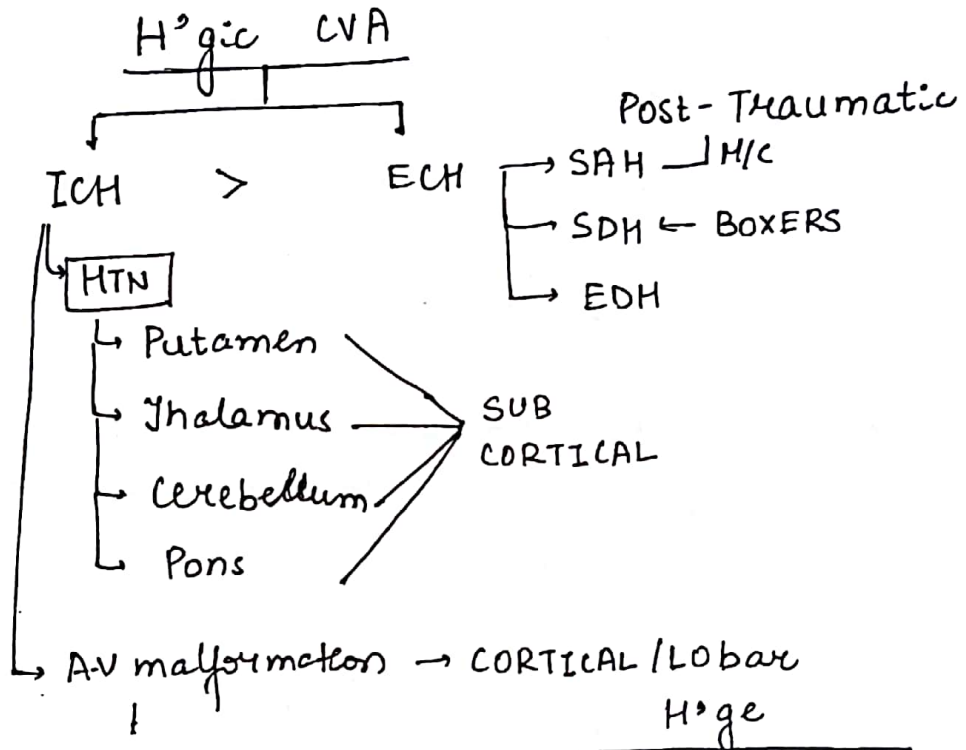 H'gic CVA
Post-Traumatic
ICH > ECH → SAH M/C
→ SDH ← BOXERS
→ EDH
HTN
Putamen
Thalamus
Cerebellum
Pons
SUB
CORTICAL
A-V malformation → CORTICAL/Lobar
H'ge